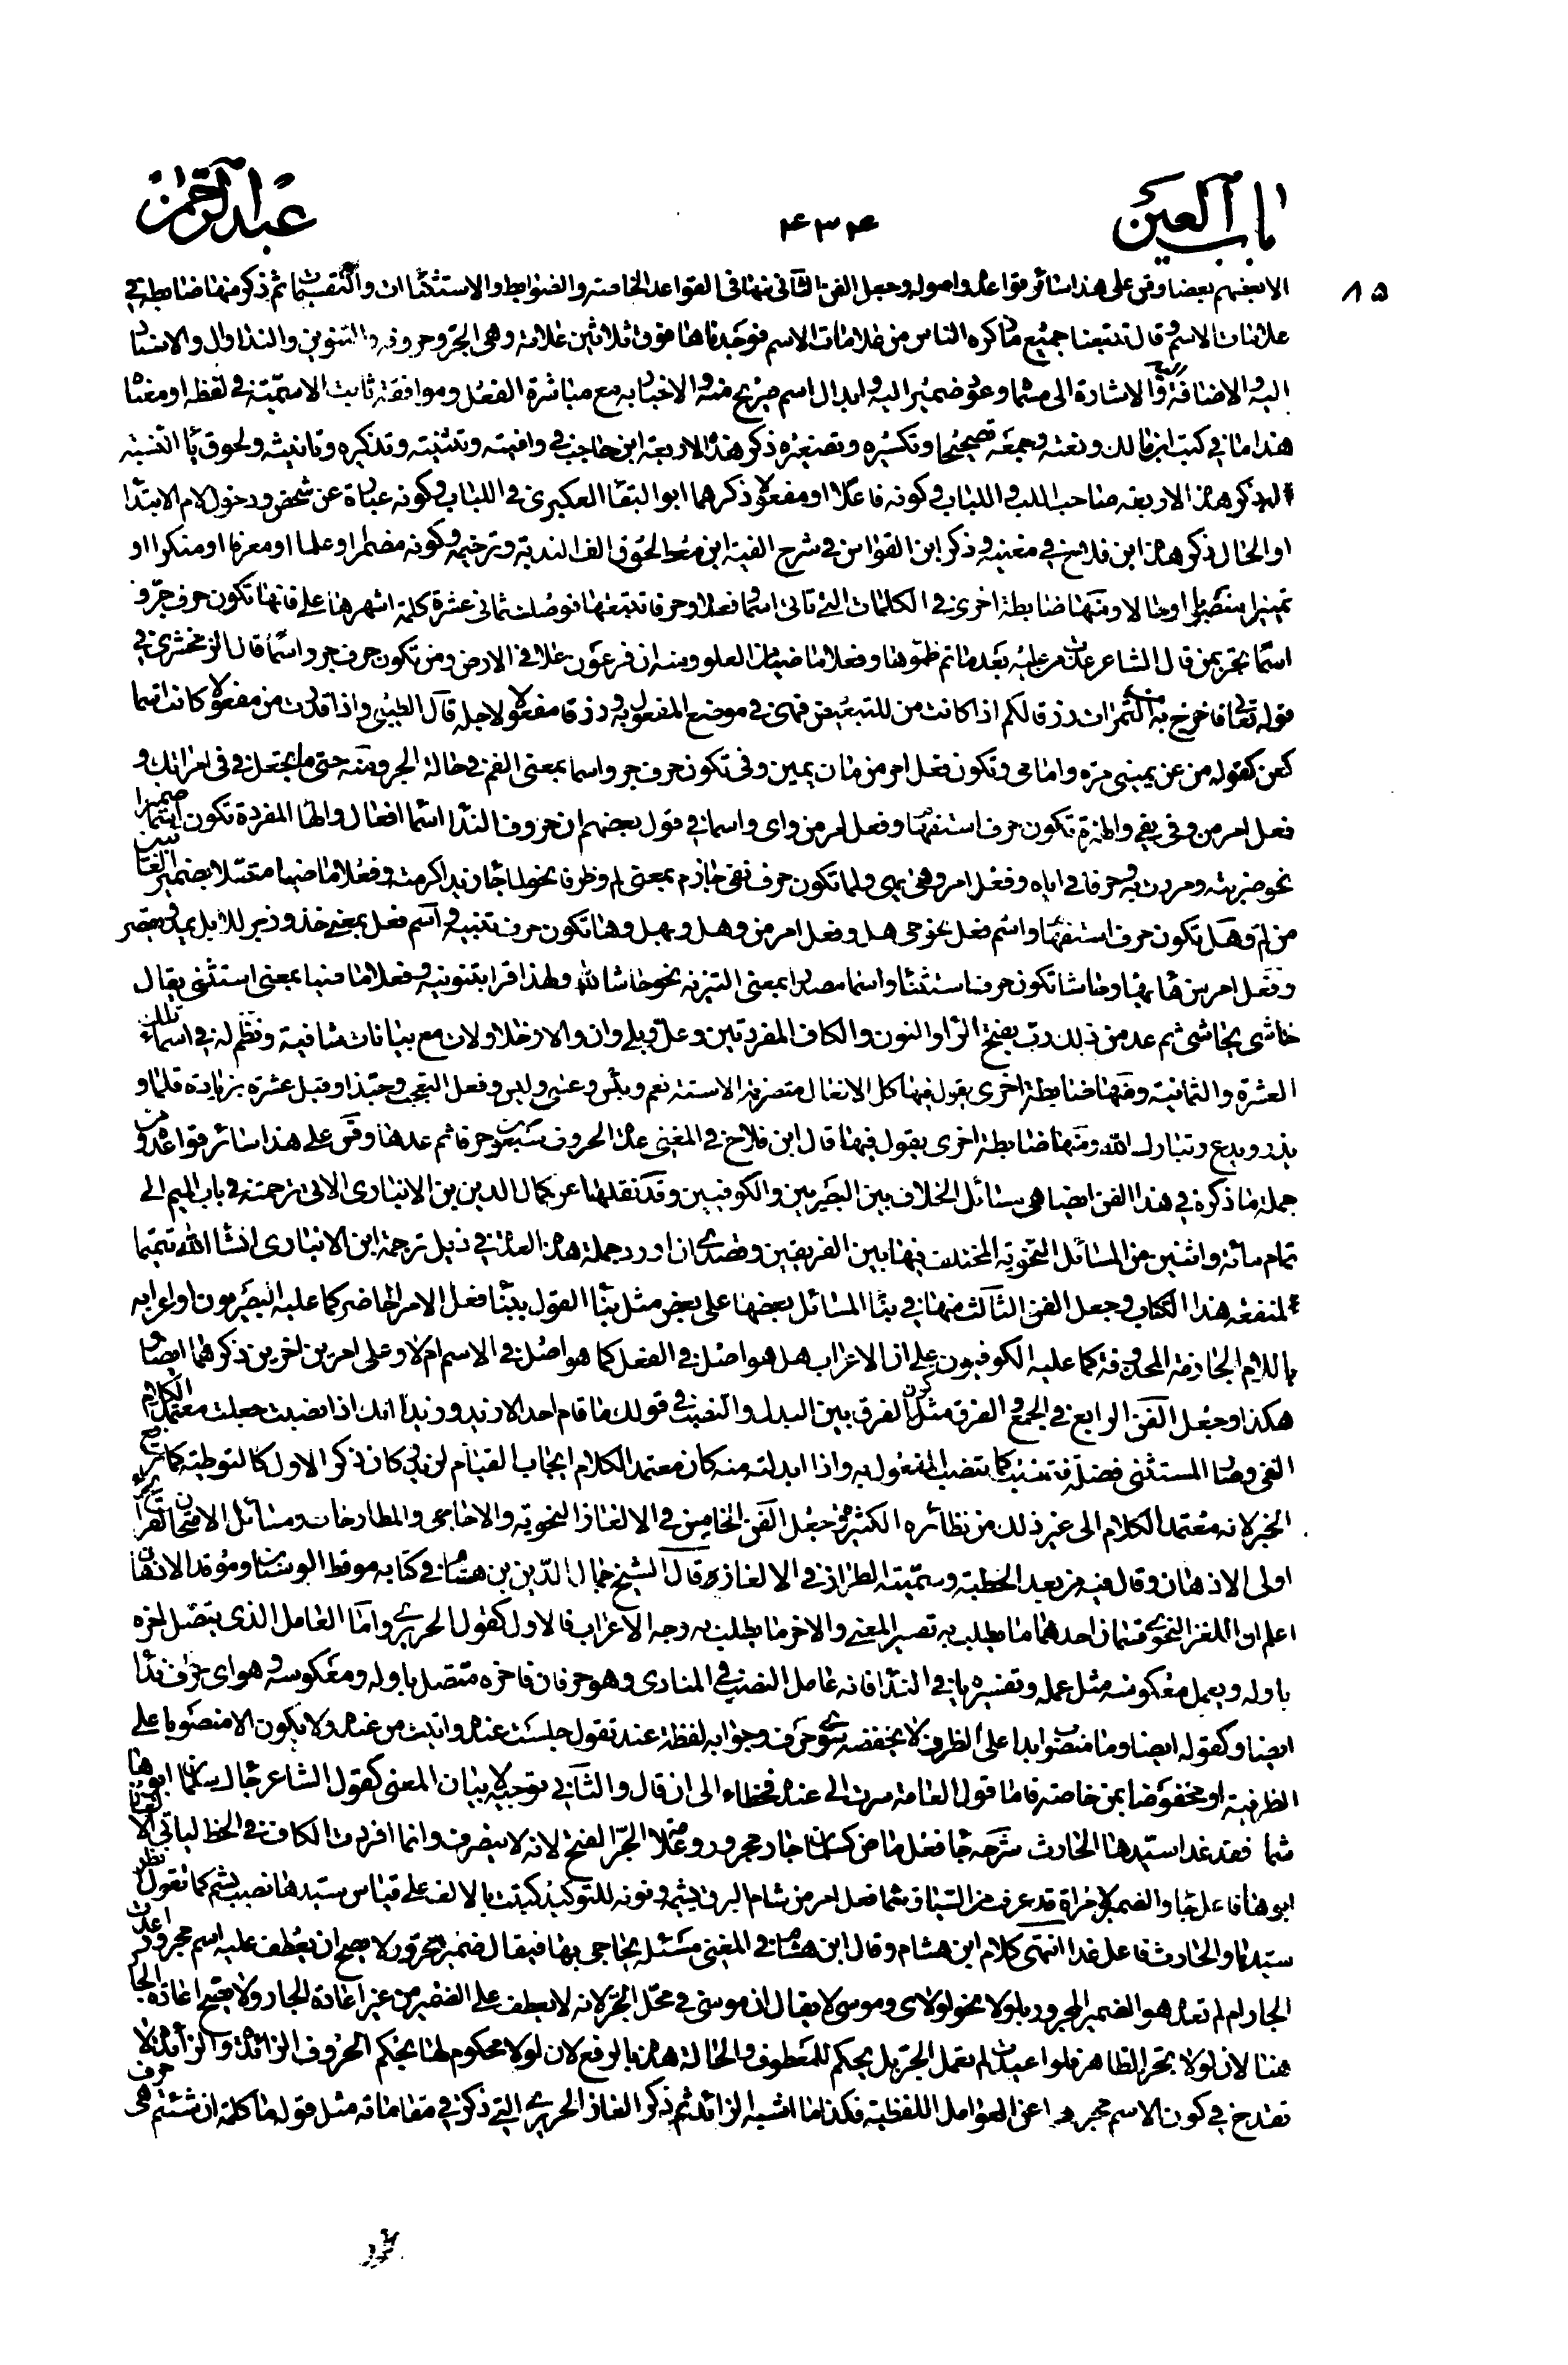 باب العین
۴۳۴
عبد الرحمن
۸۵
الا بعضهم بعضا وقس على هذا سائر قواعده واصوله وجعل الفن الثانی منها فی القواعد الخاصة والضوابط والاستثناات والتقسیمات ثم ذکر منها ضابطة فی
علامات الاسم وقال تتبعنا جمیع ما ذکره الناس من علامات الاسم فوجدناها فوق ثلاثین علامة وهی الجر وحروفه والتنوین والنداء وال والاسناد
الیه والاضافة والاشارة الى مسماه وعود ضمیر الیه وابدال اسم صریح منه والاخبار به مع مباشرة الفعل وموافقة ثابت الاسمیة فی لفظه او معناه
هذا ما فی کتب ابن مالک ونعته وجمعه تصحیحا وتکسیره وتصغیره ذکر هذه الاربعة ابن حاجب فی وافیته وتثنیته وتذکیره وتانیثه ولحوق یاء النسبة
له ذکر هذه الاربعة صاحب اللب واللباب وکونه فاعلا او مفعولا ذکرهما ابو البقاء العکبری فی اللباب وکونه عبارة عن شخص ودخول لام الابتداء
او الحال ذکر هذه ابن فلاح فی مغنیه وذکر ابن القواس فی شرح الفیة ابن معط لحوق الف الندبة وترخیمه وکونه مضمرا او علما او معرفا او منکرا او
تمییزا او حالا ومنها ضابطة اخرى فی الکلمات التی تاتی اسما وفعلا وحرفا تتبعتها فوصلت ثمانی عشرة کلمة اشهرها على فانها تکون حرف جر و
اسما یجر بمن قال الشاعر غدت من علیه بعد ما تم ظمؤها وفعلا ماضیا من العلو ومنه ان فرعون علا فی الارض ومن تکون حرف جر واسما قال الزمخشری فی
قوله تعالى فاخرج به من الثمرات رزقا لکم اذا کانت من للتبعیض فهی فی موضع المفعول به ورزقا مفعولا لاجله قال الطیبی واذا قدرت من مفعولا کانت اسما
کعن کقوله من عن یمینی مرة وامامی وتکون فعل امر من مان یمین وفی تکون حرف جر واسما بمعنى الفم فی حالة الجر ومنه حتى ما تجعل فی فی امراتک و
فعل امر من وفى یفی والهمزة تکون حرف استفهام وفعل امر من واى واسما فی قول بعضهم ان حروف النداء اسما افعال والهاء المفردة تکون اسما ضمیرا
نحو ضربته ومررت به وحرفا فی ایاه وفعل امر من وهى یهی ولما تکون حرف نفی جازم بمعنى لم وظرفا نحو لما جاء زید اکرمته وفعلا ماضیا متصلا بضمیر الغائبین
من لم وهل تکون حرف استفهام واسم فعل نحو حی هل وفعل امر من وهل یهل وها تکون حرف تنبیه واسم فعل بمعنى خذ وزجر للابل یمد ویقصر
وفعل امر من هاء یهاء وحاشا تکون حرف استثناء واسما مصدرا بمعنى التنزیه نحو حاشا لله ولهذا قرا بتنوینه وفعلا ماضیا بمعنى استثنى یقال
حاشى یحاشی ثم عد من ذلک رب بفتح الراء والنون والکاف المفردتین وعل وبلى وان والا وخلا ولات مع بیانات شافیة ونظم له فی اسماء تلک
العشرة والثمانیة ومنها ضابطة اخرى یقول فیها کل الافعال متصرفة الا ستة نعم وبئس وعسى ولیس وفعل التعجب وحبذا وقیل عشرة بزیادة قلما و
یذر ویدع وتبارک الله ومنها ضابطة اخرى یقول فیها قال ابن فلاح فی المغنی عدة الحروف سبعون حرفا ثم عدها وقس على هذا سائر قواعده ومن
جملة ما ذکره فی هذا الفن ایضا هی مسائل الخلاف بین البصریین والکوفیین وقد نقلها عن کمال الدین بن الانباری الاتی ترجمته فی باب المیم الى
تمام مائة واثنین من المسائل النحویة المختلف فیها بین الفریقین وقصدی ان اورد جملة هذه العدة فی ذیل ترجمة ابن الانباری انشاء الله تتمیما
لمنفعة هذا الکتاب وجعل الفن الثالث منها فی بناء المسائل بعضها على بعض مثل بناء القول ببناء فعل الامر الحاضر کما علیه البصریون او اعرابه
باللام الجازمة المحذوفة کما علیه الکوفیون على ان الاعراب هل هو اصل فی الفعل کما هو اصل فی الاسم ام لا وعلى امرین اخرین ذکرهما ایضا و
هکذا وجعل الفن الرابع فی الجمع والفرق مثل ذکر الفرق بین البدل والنصب فی قولک ما قام احد الا زید وزیدا انک اذا نصبت جعلت معتمد الکلام
النفی وصار المستثنى فضلة فتنصبه کما تنصب المفعول به واذا ابدلته منه کان معتمد الکلام ایجاب القیام لزید وکان ذکر الاول کالتوطئة کما ترفع
الخبر لانه معتمد الکلام الى غیر ذلک من نظائره الکثیرة وجعل الفن الخامس فی الالغاز النحویة والاحاجی والمطارحات ومسائل الامتحان
اولى الاذهان وقال فیه من بعد الخطبة وسمیته الطراز فی الالغاز قال الشیخ جمال الدین بن هشام فی کتابه موقظ الوسنان وموقد الاذهان
اعلم ان اللغز النحوی قسمان احدهما ما یطلب به تفسیر المعنى والاخر ما یطلب به وجه الاعراب فالاول کقول الحریری وما العامل الذی یتصل اخره
باوله ویعمل معکوسه مثل عمله وتفسیره یا فی النداء فانه عامل النصب فی المنادى وهو حرفان فاخره متصل باوله ومعکوسه وهو ای حرف نداء
ایضا وکقوله ایضا وما منصوب ابدا على الظرف لا یخفضه سوى حرف وجوابه لفظة عند تقول جلست عنده واتیت من عنده ولا یکون الا منصوبا على
الظرفیة او مخفوضا بمن خاصة فاما قول العامة سرت الى عنده فخطاء الى ان قال والثانی توجیهه لا بیان المعنى کقول الشاعر جاءک سلمان ابو هاشما
فقد غدا سیدها الحارث شرحه جاء فعل ماض کسلمان جار ومجرور وعلامة الجر الفتح لانه لا ینصرف وانما افردت الکاف فی الخط لیاتی الالغاز
ابوها فاعل جاء والضمیر لامراة قد عرفت من السیاق شما فعل امر من شام البرق یشیمه ونونه للتوکید کتبت بالالف على قیاس سیدها نصب بشم کما تقول انظر
سیدها والحارث فاعل غدا انتهى کلام ابن هشام وقال ابن هشام فی المغنی مسئلة یحاجى بها فیقال ضمیر مجرور لا یصح ان یعطف علیه اسم مجرور اعدت
الجار ام لم تعده هو الضمیر المجرور بلولا نحو لولای وموسى لا یقال ان موسى فی محل الجر لانه لا یعطف على الضمیر من غیر اعادة الجار ولا یصح اعادة الجار
هنا لان لولا لا تجر الظاهر فلو اعیدت لم تعمل الجر بل یحکم للمعطوف والحالة هذه بالرفع لان لولا محکوم لها بحکم الحروف الزائدة والزائد لا
تقدح فی کون الاسم مجردا عن العوامل اللفظیة فکذا ما اشبه الزائد ثم ذکر الغاز الحریری التی ذکر فی مقاماته مثل قوله ما کلمة ان شئتم هی حرف